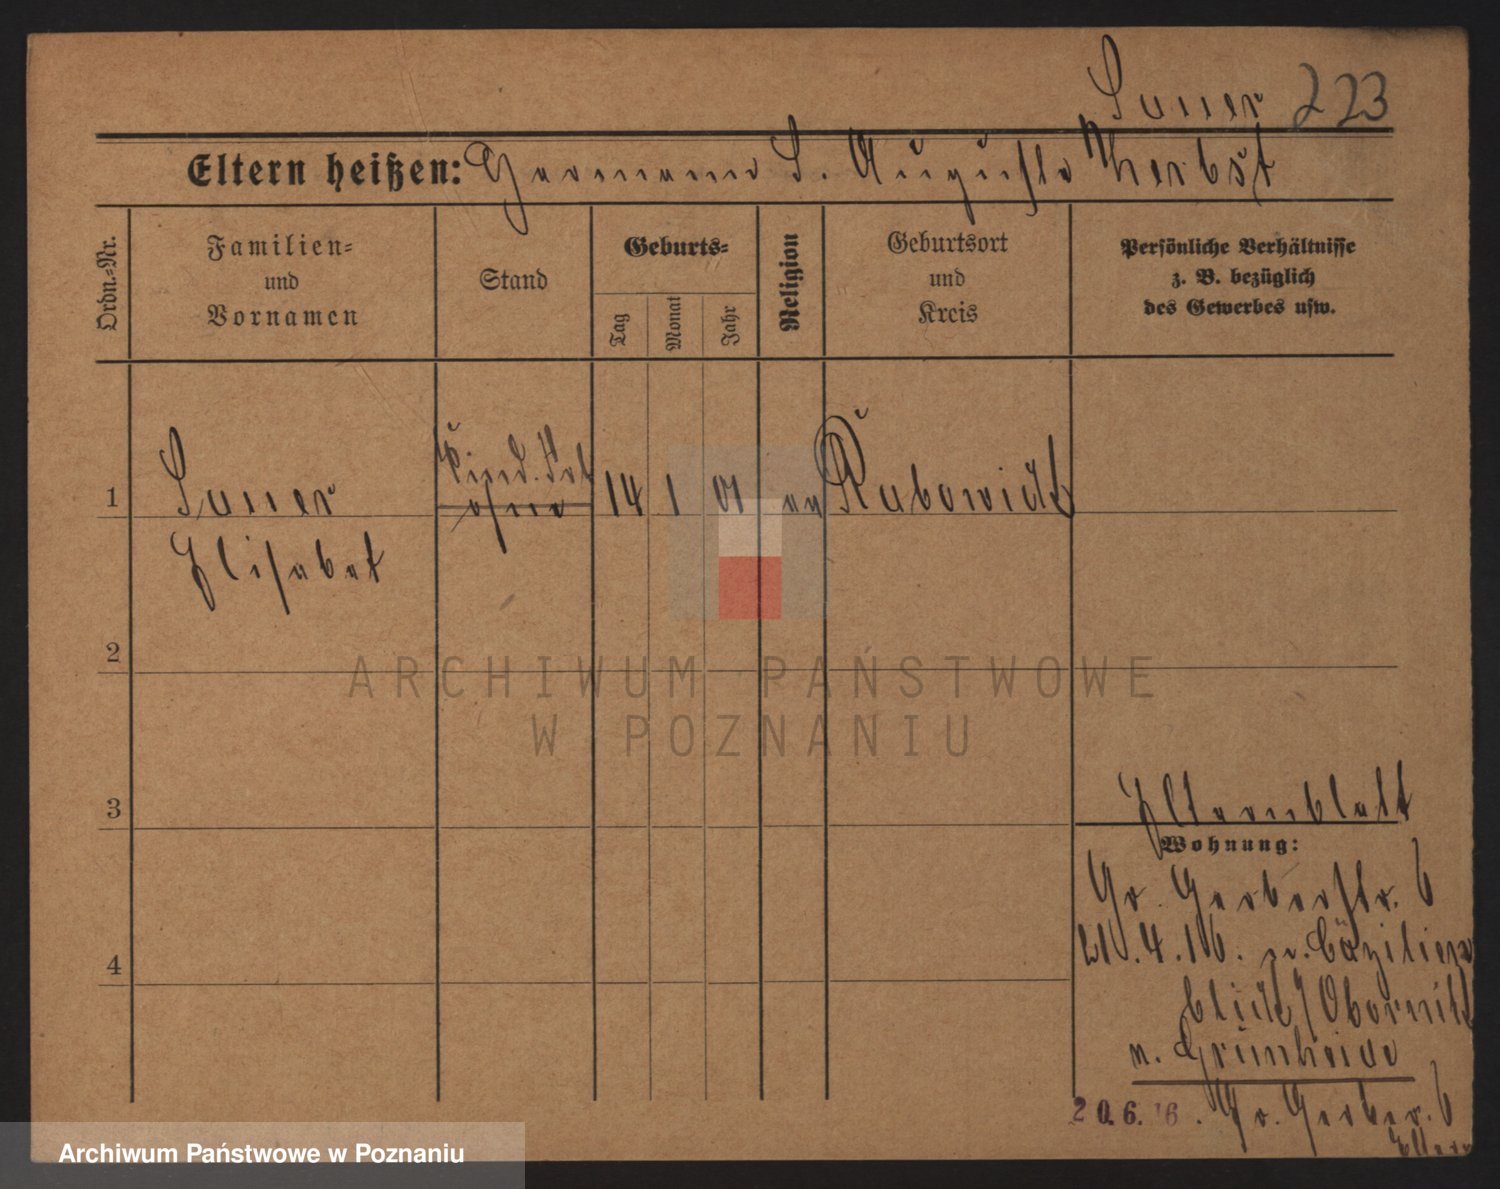 Sauer 223
Eltern heißen: Hermann S. Auguste Herbst
Ordn.-Nr.
Familien-
und
Vornamen
Stand
Geburts-
Tag
Monat
Jahr
Religion
Geburtsort
und
Kreis
Persönliche Verhältnisse
z. B. bezüglich
des Gewerbes usw.
1 Sauer 14 1 01 ev
ohne
Elisabet
2
3
4
Elternblatt
Wohnung:
Gr. Gerberstr. 6
.4.16. Cäzilien
Obornik
n. Grünheide
20.6.16. Gr. Gerber. 6
ARCHIWUM PAŃSTWOWE
W POZNANIU
Archiwum Państwowe w Poznaniu